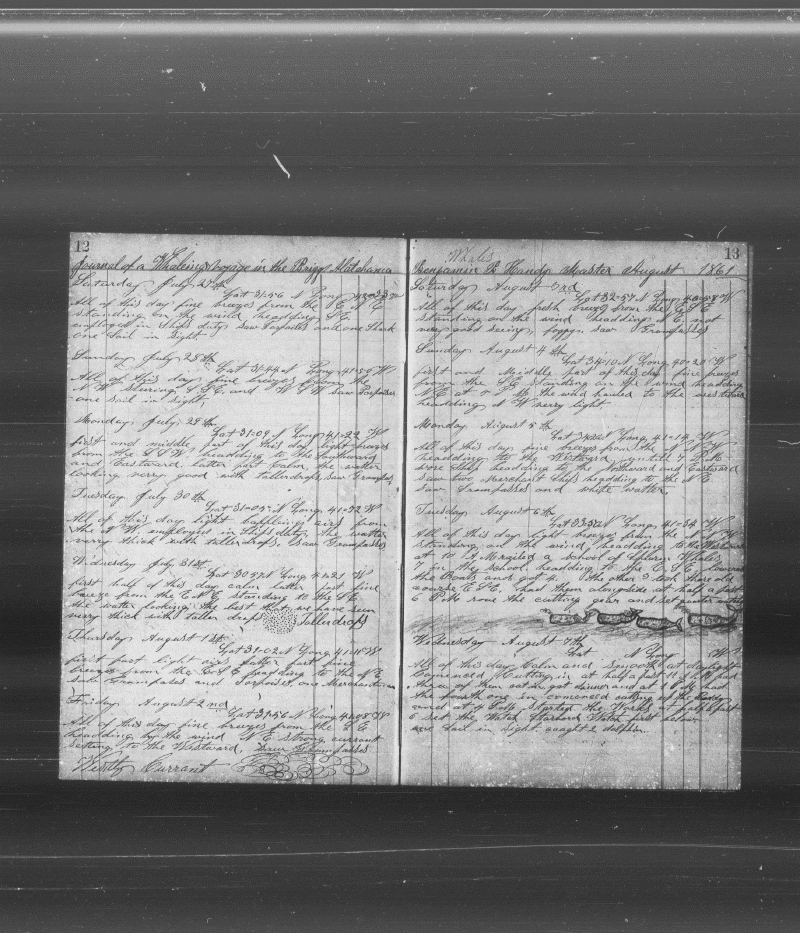 12
Journal of a Whaleing voyage in the Brigg
Saturday July 27th
Lat 31-56 N Long
All of this day fine breezes from the E N E
standing on the wind heading S E
employed in Ships duty saw Porpoises and one Shark
one Sail in sight
Sunday July 28th
Lat 31-44 N Long 41-59 W
All of this day fine breezes from the
N W steering S S E and W S W saw Porpoises
one sail in sight
Monday July 29th
Lat 31-09 N Long 41-22 W
first and middle part of this day light breezes
from the S S W headding to the Southward
and Eastward, latter part Calm, the water
looking very good with tallerdrops, saw Grampuses
Tuesday July 30th
Lat 31-05 N Long 41-32 W
All of this day light baffleing airs from
the W employed in Ships duty, the watter
very thick with tallerdrops, saw Grampusses
Wednesday July 31st
Lat 30-57 N Long 41-21 W
first half of this day calm latter part fine
breeze from the E N E standing to the S E
the water looking the best that we have seen
very thick with taller drops Tallerdrops
Thursday August 1st
Lat 31-02 N Long 41-10 W
first part light airs latter part fine
breezes from the E S E heading to the N E
saw Grampuses and Porpoises, one Merchantman
Friday August 2nd
Lat 31-56 N Long 40-08 W
All of this day fine breezes from the E S E
headding by the wind N E strong currant
setting to the Westward, Saw Grampusses
Westly Currant
Whales
13
Benjamin R Handy Master August 1861
Saturday August 3rd
Lat 32-57 N Long 40-58 W
All of this day fresh breeze from the E S E
standing on the wind headding N E not
very good seeing, foggy, saw Grampusses
Sunday August 4th
Lat 34-10 N Long 40-20 W
first and Middle part of this day fine breezes
from the S E standing on the wind heading
N E at 5 P M the wind hauled to the westward
headding N W verry light
Monday August 5th
Lat N Long 41-19 W
All of this day fine breezes from the N N W
headding to the Westward untill 7 A M
wore Ship headding to the Northward and Eastward
saw two Merchant Ships headding to the N E
saw Grampusses and white watter
Tuesday August 6th
Lat N Long, 41-34 W
All of this day light breezes from the N
standing on the wind, headding to the Westward
at 10 A M raised a school of Sperm Whales
7 in the school, headding to the E S E lowered
the Boats and got 4. the other 3 took there old
course E S E, had them alongside at half a past
6 P M rove the cutting gear and set watch
Wednesday August 7th
Lat N Long W
All of this day Calm and smooth at daylight
Comenced Cutting in at half a past 11 A M had
three of them cut in got dinner and at 1 P M had
the fourth one in comenced cutting the heads
at 4 P M, started the Works at half a past
6 set the Watch Starbord Watch first below
one Sail in sight. caught 2 dolphin